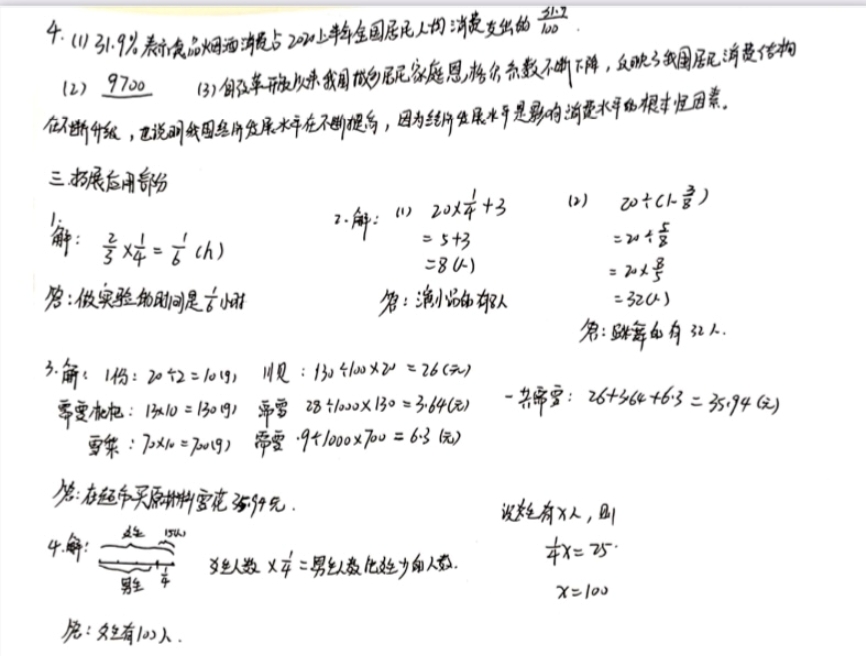 4. (1) 31.9%表示食品烟酒消费占2020上半年全国居民人均消费支出的 31.9/100 .
(2) 9700 (3) 自改革开放以来我国城乡居民家庭恩格尔系数不断下降，反映了我国居民消费结构
在不断升级，也说明我国经济发展水平在不断提高，因为经济发展水平是影响消费水平的根本性因素。
三.拓展应用部分
1.
解： 2/3 × 1/4 = 1/6 (h)
答：做实验的时间是 1/6 小时
2. 解： (1) 20×1/4+3
=5+3
=8(人)
答：演小品的有8人
(2) 20÷(1-3/8)
=20÷5/8
=20×8/5
=32(人)
答：跳舞的有32人.
3. 解： 1份：20÷2=10(g) 川贝：130÷100×20=26(元)
需要枇杷：13×10=130(g) 需要 28÷1000×130=3.64(元)
雪梨：70×10=700(g) 需要 9÷1000×700=6.3(元)
一共需要：26+3.64+6.3=35.94(元)
答：在超市买原材料要花35.94元.
4. 解： 女生
男生 1/4
女生人数×1/4=男生人数比女生少的人数.
设女生有x人，则
1/4x=25.
x=100
答：女生有100人.